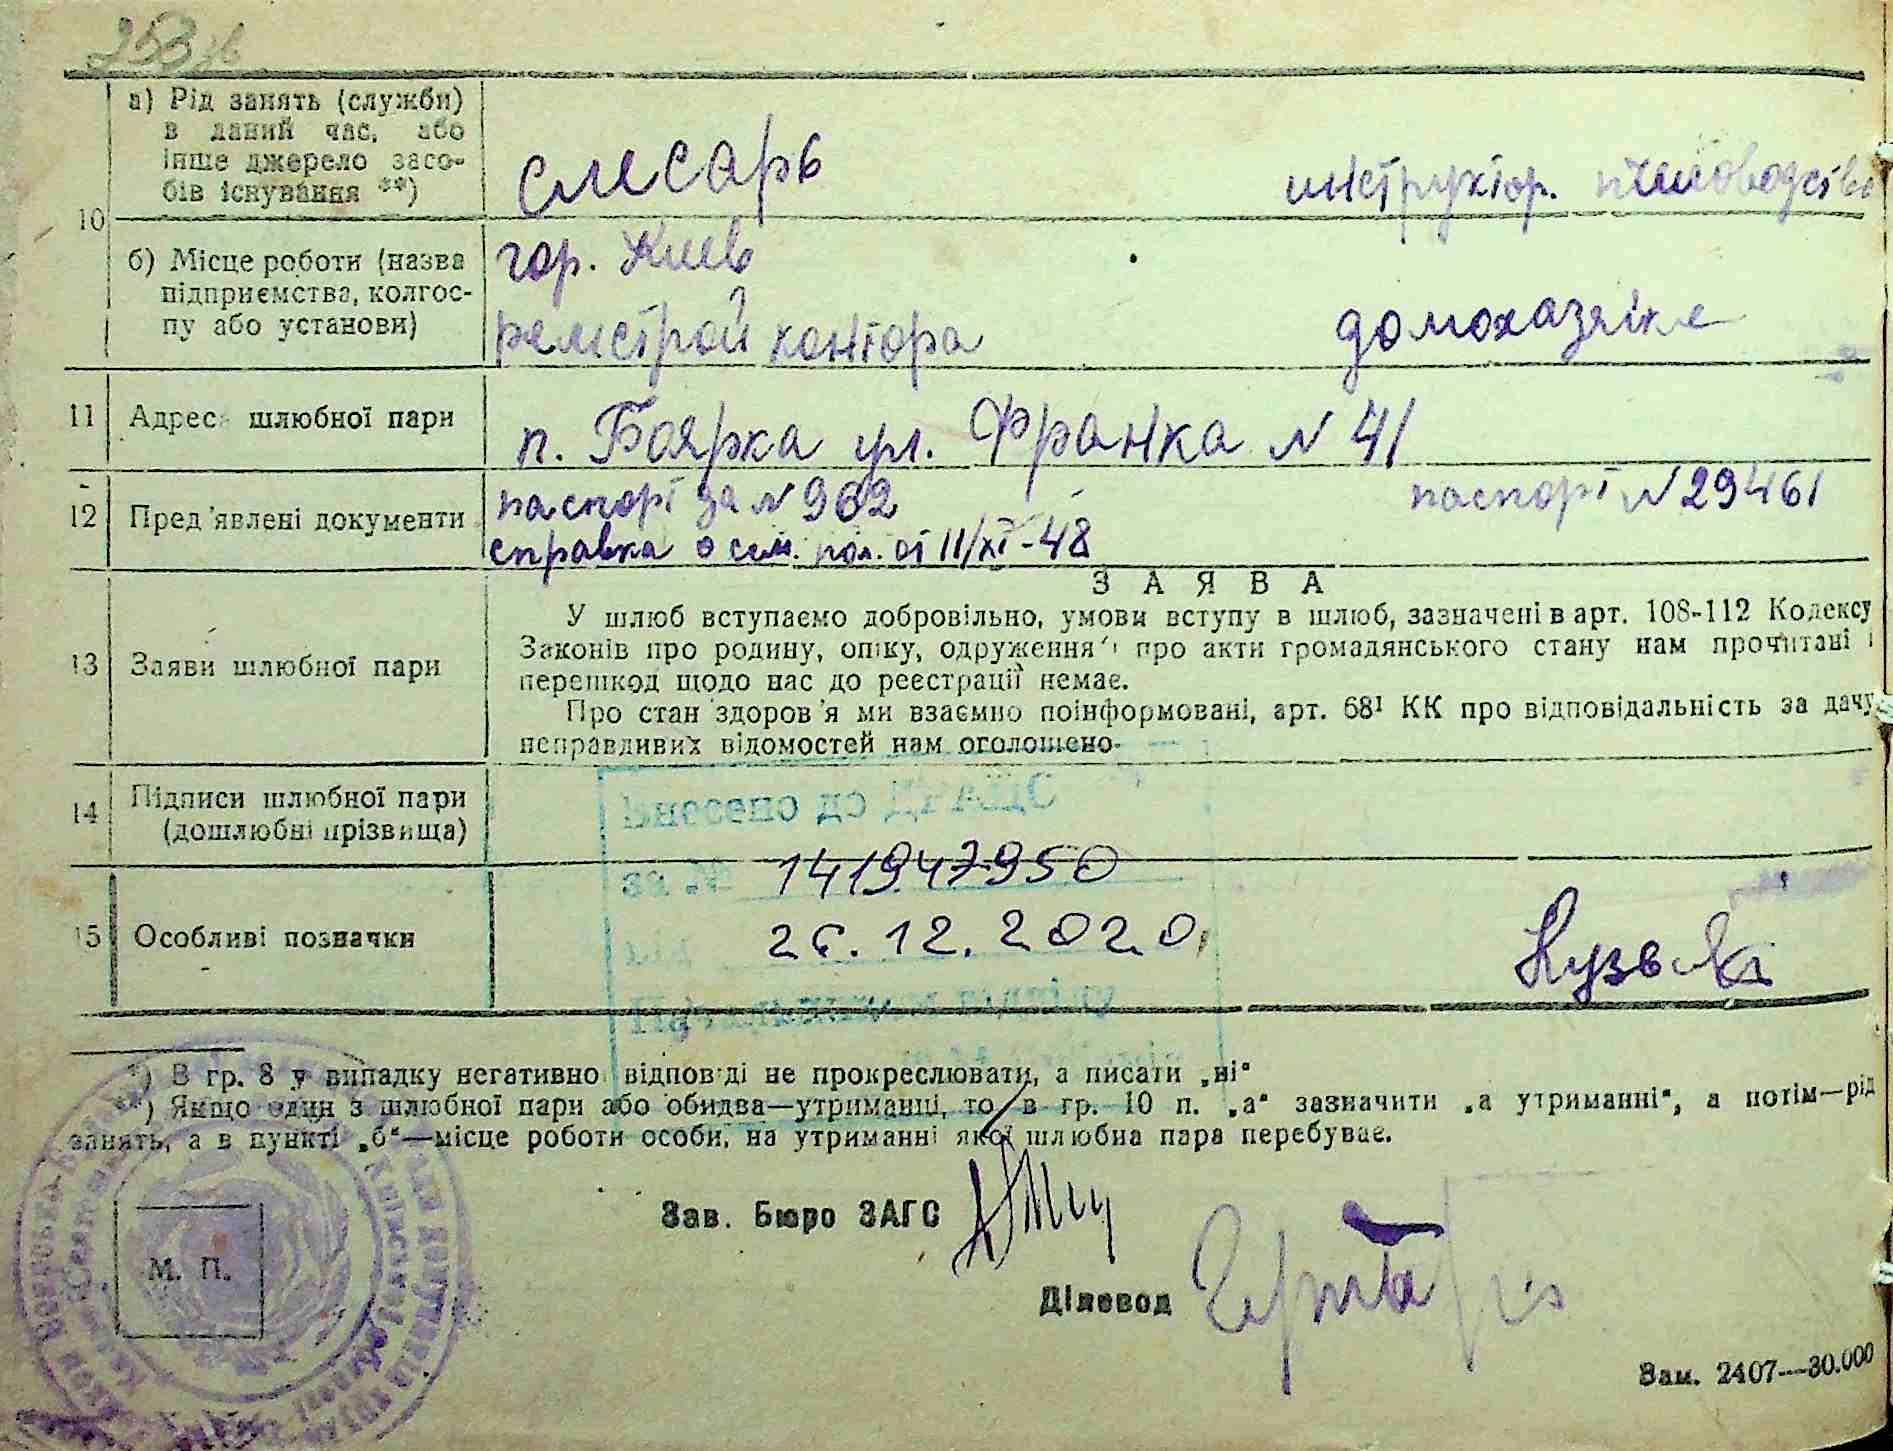 253 зв
10
а) Рід занять (служби) в даний час, або інше джерело засобів існування **)
слесарь
инструктор. пчеловодство
б) Місце роботи (назва підприємства, колгоспу або установи)
гор. Киев
ремстрой контора
домохазяйке
11 Адреса шлюбної пари
п. Боярка ул. Франка N 41
12 Пред'явлені документи
паспорт за N 962
паспорт N 29461
справка о сем. пол. от 11/XI-48
13 Заяви шлюбної пари
ЗАЯВА
У шлюб вступаємо добровільно, умови вступу в шлюб, зазначені в арт. 108-112 Кодексу
Законів про родину, опіку, одруження і про акти громадянського стану нам прочитані і
перешкод щодо нас до реєстрації немає.
Про стан здоров'я ми взаємно поінформовані, арт. 68¹ КК про відповідальність за дачу
неправдивих відомостей нам оголошено.
14 Підписи шлюбної пари (дошлюбні прізвища)
Внесено до ДРАЦС
за № 141947950
15 Особливі позначки
від 26.12.2020
*) В гр. 8 у випадку негативної відповіді не прокреслювати, а писати „ні“
**) Якщо один з шлюбної пари або обидва—утриманці, то в гр. 10 п. „а“ зазначити „а утриманні“, а потім—рід
занять, а в пункті „б“—місце роботи особи, на утриманні якої шлюбна пара перебуває.
Зав. Бюро ЗАГС
М. П.
Діловод
Зам. 2407—30.000